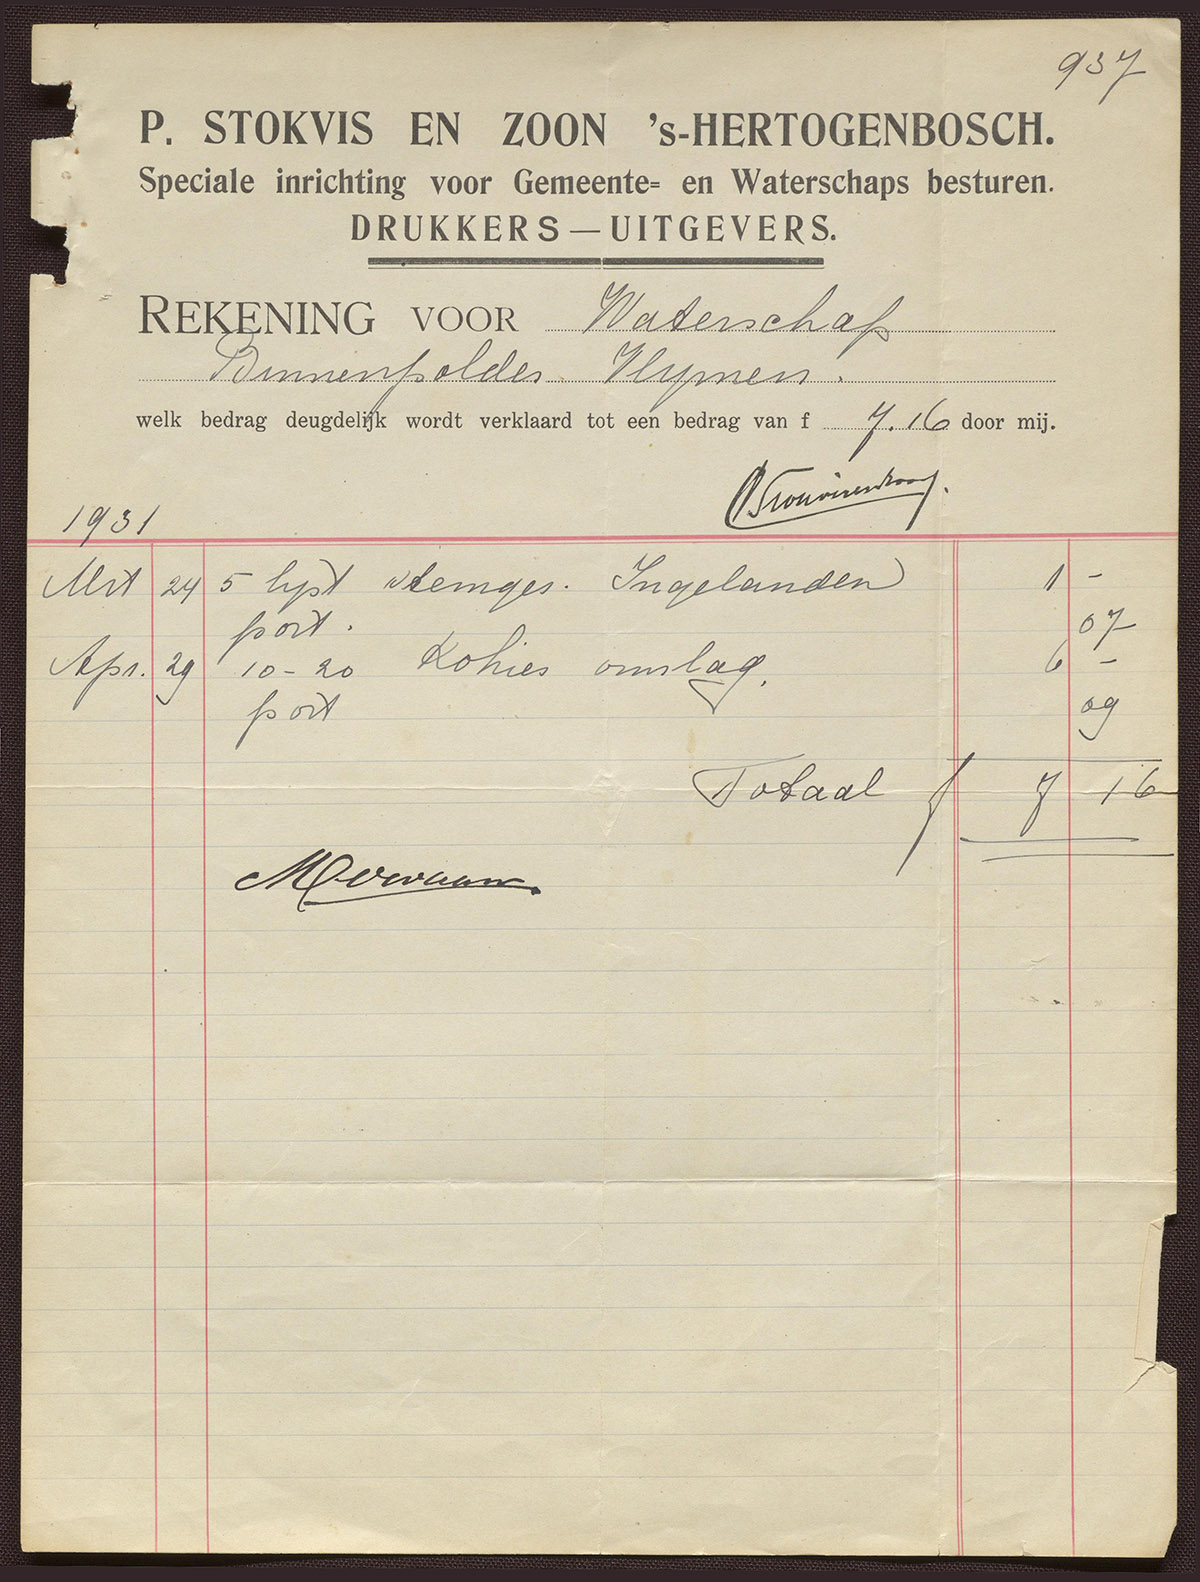 937
P. STOKVIS EN ZOON 's-HERTOGENBOSCH.
Speciale inrichting voor Gemeente= en Waterschaps besturen.
DRUKKERS—UITGEVERS.
REKENING VOOR Waterschap
Binnenpolder Vlymen.
welk bedrag deugdelijk wordt verklaard tot een bedrag van f 7.16 door mij.
1931
Mrt 24 5 lyst stemger. Ingelanden 1 -
port. 07
Apr. 29 10-20 Kohier omslag. 6 -
port 09
Totaal f 7 16